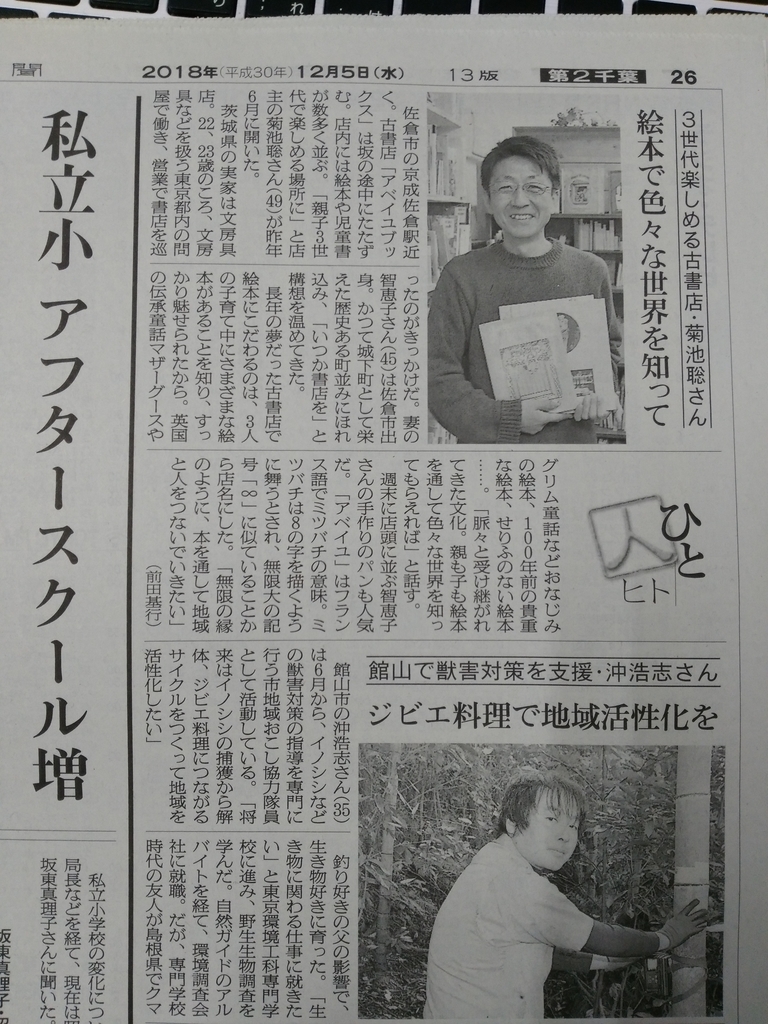 聞
2018年(平成30年)12月5日(水)
13版
第2千葉
26
3世代楽しめる古書店・菊池聡さん
絵本で色々な世界を知って
佐倉市の京成佐倉駅近
く。古書店「アベイユブッ
クス」は坂の途中にたたず
む。店内には絵本や児童書
が数多く並ぶ。「親子3世
代で楽しめる場所に」と店
主の菊池聡さん(49)が昨年
6月に開いた。
茨城県の実家は文房具
店。22、23歳のころ、文房
具などを扱う東京都内の問
屋で働き、営業で書店を巡
ったのがきっかけだ。妻の
智恵子さん(45)は佐倉市出
身。かつて城下町として栄
えた歴史ある町並みにほれ
込み、「いつか書店を」と
構想を温めてきた。
長年の夢だった古書店で
絵本にこだわるのは、3人
の子育て中にさまざまな絵
本があることを知り、すっ
かり魅せられたから。英国
の伝承童話マザーグースや
グリム童話などおなじみ
の絵本、100年前の貴重
な絵本、せりふのない絵本
……。「脈々と受け継がれ
てきた文化。親も子も絵本
を通して色々な世界を知っ
てもらえれば」と話す。
週末に店頭に並ぶ智恵子
さんの手作りのパンも人気
だ。「アベイユ」はフラン
ス語でミツバチの意味。ミ
ツバチは8の字を描くよう
に舞うとされ、無限大の記
号「∞」に似ていることか
ら店名にした。「無限の縁
のように、本を通して地域
と人をつないでいきたい」
(前田基行)
ひと
人
ヒト
館山で獣害対策を支援・沖浩志さん
ジビエ料理で地域活性化を
館山市の沖浩志さん(35)
は6月から、イノシシなど
の獣害対策の指導を専門に
行う市地域おこし協力隊員
として活動している。「将
来はイノシシの捕獲から解
体、ジビエ料理につながる
サイクルをつくって地域を
活性化したい」
釣り好きの父の影響で、
生き物好きに育った。「生
き物に関わる仕事に就きた
い」と東京環境工科専門学
校に進み、野生生物調査を
学んだ。自然ガイドのアル
バイトを経て、環境調査会
社に就職。だが、専門学校
時代の友人が島根県でクマ
私立小 アフタースクール増
私立小学校の変化につい
局長などを経て、現在は昭
坂東真理子さんに聞いた。
坂東真理子・昭